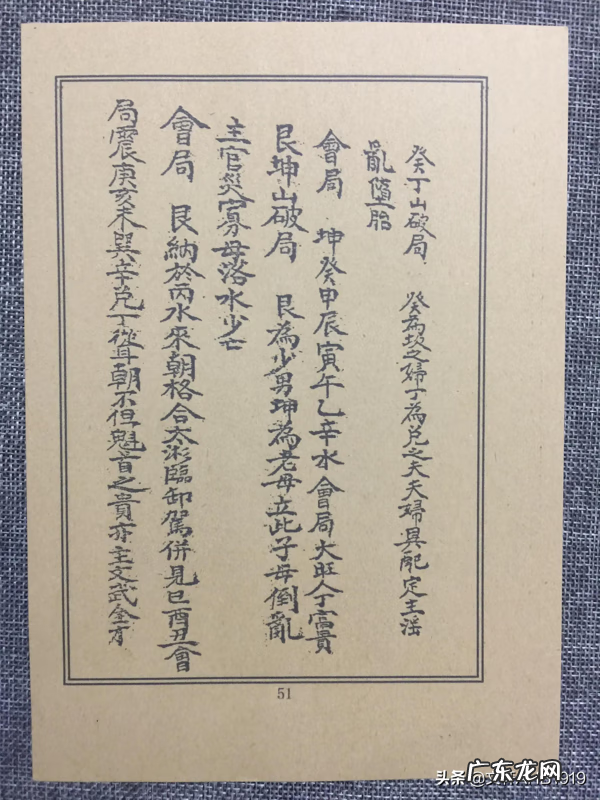 癸丁山破局　癸為坎之婦丁為兌之夫夫婦異配定主淫
亂墮胎
會局　坤癸申辰寅午乙辛水會局大旺人丁富貴
艮坤山破局　艮為少男坤為老母立此子母倒亂
主官災寡母落水少亡
會局　艮納於丙水來朝格合太 臨卸駕併見巳酉丑會
局震庚亥未巽辛兌丁從耳朝不但魁首之貴亦主文武全才
51
头条 @ 919
广东龙网